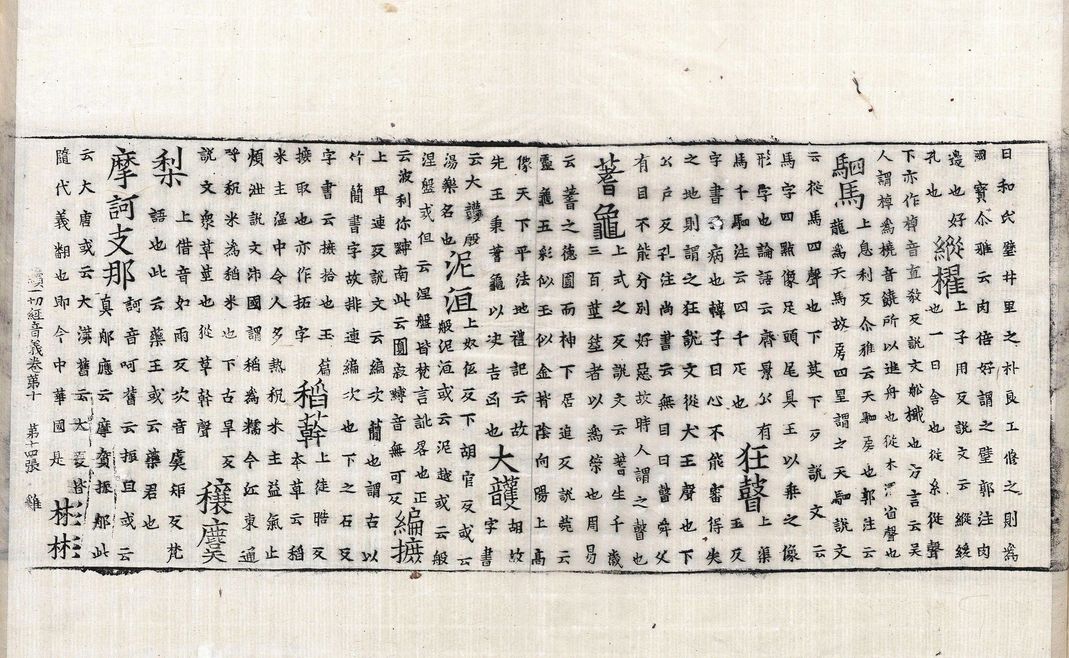 曰和氏璧井里之朴良工修之則爲
國寶尒雅云肉倍好謂之璧郭注肉
邊也好
孔也
縱櫂
上子用反說文云縱緩
也一曰舍也從糸從聲
下亦作棹音直敎反說文船檝也方言云吳
人謂棹爲橈音饒所以進舟也從木翟省聲也
駟馬
上息利反尒雅云天駟房也郭注云
龍爲天馬故房四星謂之天駟說文
云從馬四聲也下莫下反說文云
馬字四點像足頭尾具王以乘之像
形字也論語云齊景公有
馬千駟注云四千疋也
狂瞽
上渠
王反
字書云病也韓子曰心不能審得失
之地則謂之狂說文從犬王聲也下
公戶反孔注尚書云無目曰瞽舜父
有目不能分別好惡故時人謂之瞽也
蓍龜
上式之反說文云蓍生千歲
三百莖筮者以爲策也周易
云蓍之德圓而神下居追反說菀云
靈龜五彩似玉似金背陰向陽上高
像天下平法地禮記云故
先王秉蓍龜以决吉凶也
大頀
胡故
字書
云大護殷
湯樂名也
泥洹
上奴低反下胡官反或云
般泥洹或云泥越或云般
涅盤或但云涅盤皆梵言訛畧也正
云波利你縛南此云圓寂縛音無可反
編摭
上卑連反說文云編次簡也謂古以
竹簡書字故排連編次也下之石反
字書云摭拾也玉篇
摭取也亦作拓字
稻𦼮
上徒晧反
本草云稻
米主溫中令人多熱秔米主益氣止
煩泄說文沛國謂稻爲糯今江東通
呼秔米爲稻米也下古旱反
說文衆草莖也從草幹聲
穰麌
梨
上借音如雨反次音虞矩反梵
語也此云藥王或云藥君也
摩訶支那
訶音呵舊云振旦或云
真那應云摩賀振那此
云大唐或云大漢舊云大夏皆
隨代義翻也即今中華國是
彬彬
續一切經音義卷第十 第十四張 雞